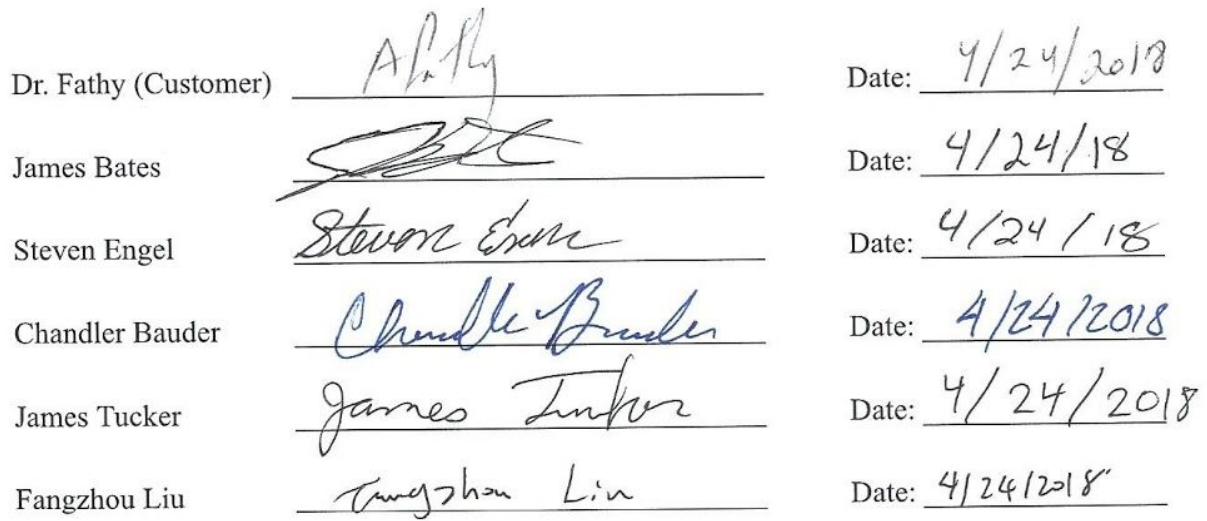 Dr. Fathy (Customer) A Fathy Date: 4/24/2018
James Bates Date: 4/24/18
Steven Engel Steven Date: 4/24/18
Chandler Bauder Chandler Bauder Date: 4/24/2018
James Tucker James Tucker Date: 4/24/2018
Fangzhou Liu Fangzhou Liu Date: 4/24/2018